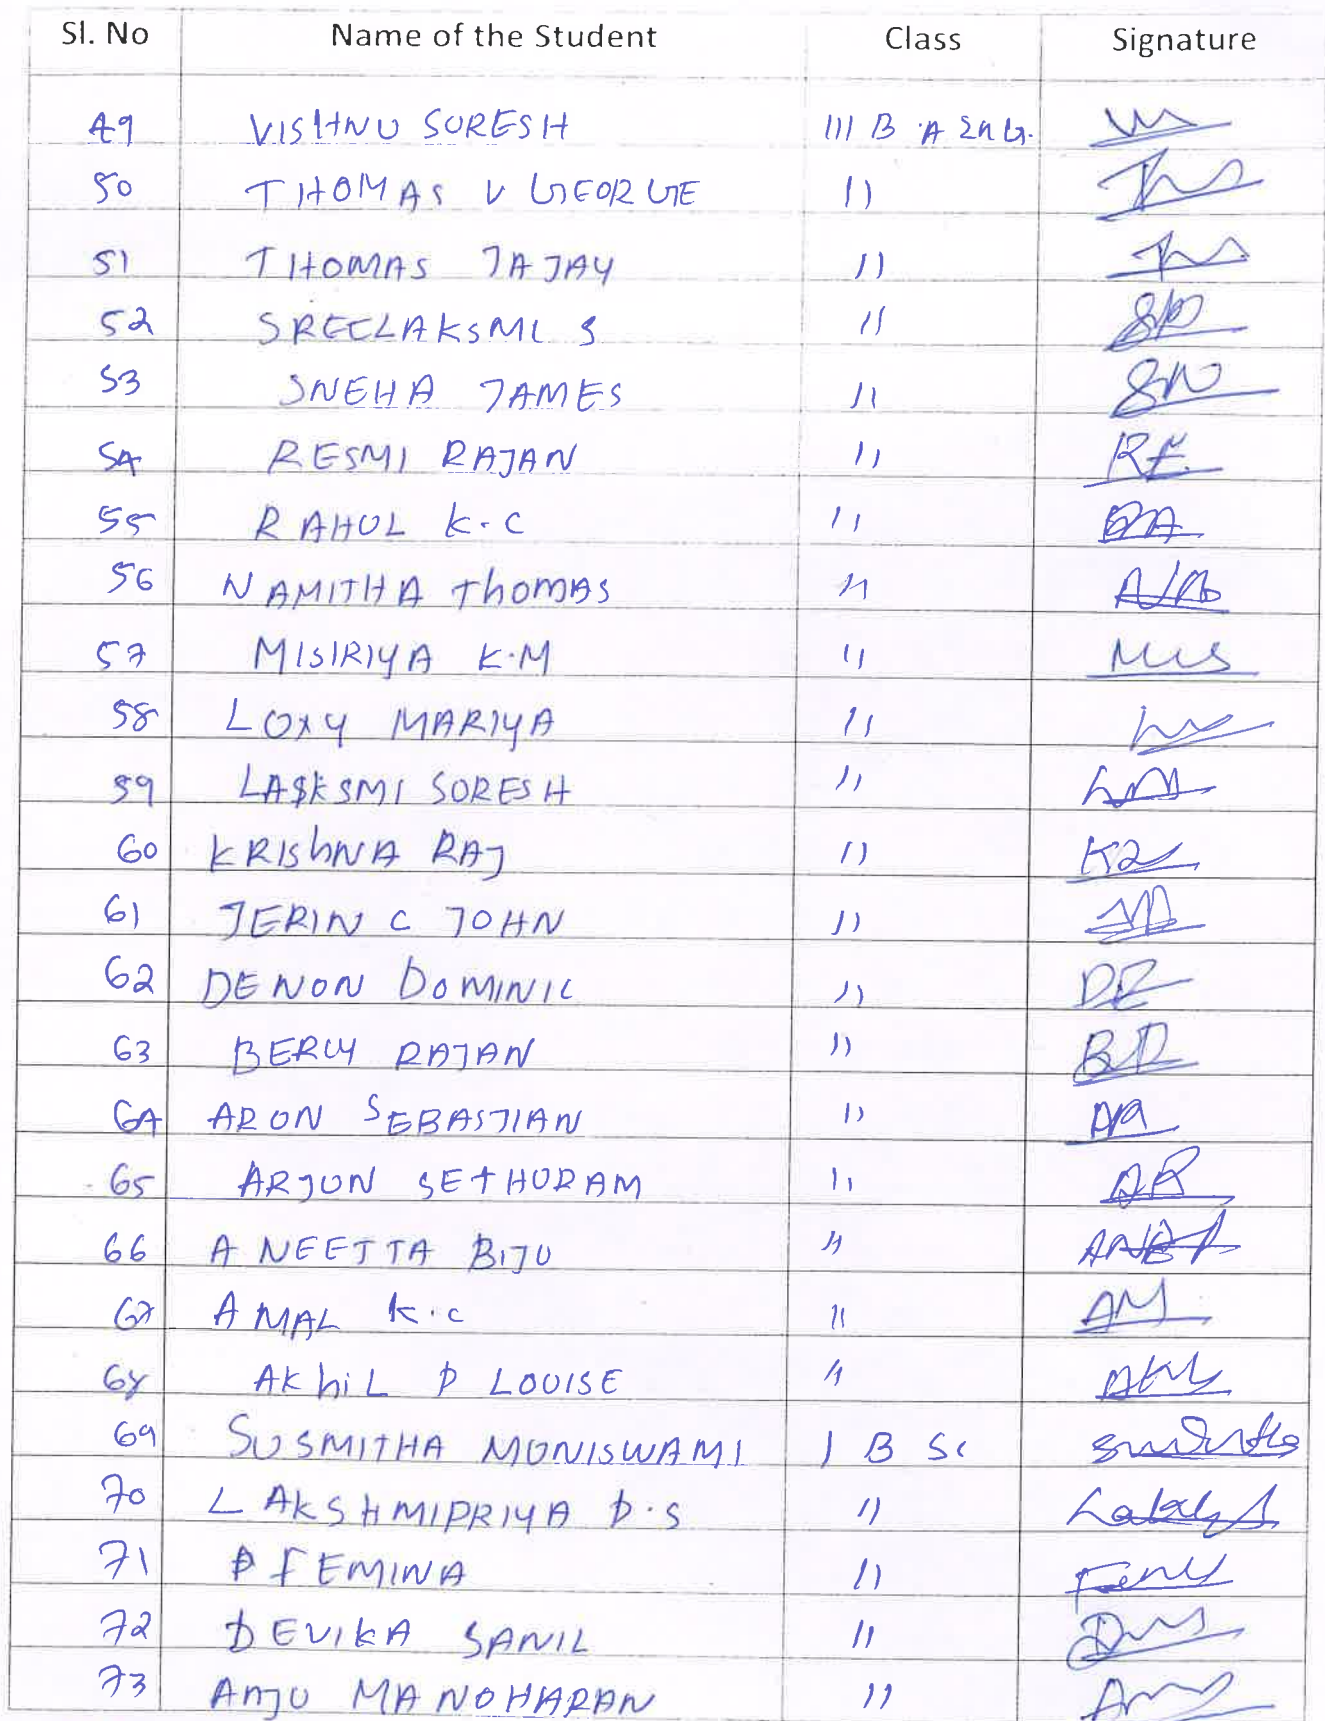 Sl. No Name of the Student Class Signature
49 VISHNU SURESH III B.A Eng.
50 THOMAS V GEORGE 11
51 THOMAS JAJAY 11
52 SREELAKSMI S 11
53 SNEHA JAMES 11
54 RESMI RAJAN 11
55 RAHUL K.C 11
56 NAMITHA Thomas 11
57 MISIRIYA K.M 11
58 LOXY MARIYA 11
59 LASKSMI SURESH 11
60 KRIShNA RAJ 11
61 JERIN C JOHN 11
62 DENON DOMINIC 11
63 BERLY RAJAN 11
64 ARON SEBASTIAN 11
65 ARJUN SETHURAM 11
66 ANEETTA BIJU 11
67 AMAL K.C 11
68 AKhiL P LOUISE 11
69 SUSMITHA MUNISWAMI I B Sc
70 LAKSHMIPRIYA P.S 11
71 P FEMINA 11
72 DEVIKA SANIL 11
73 ANJU MANOHARAN 11